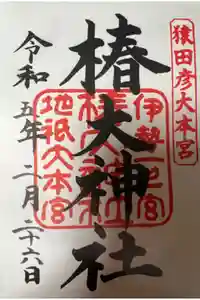 猿田彦大本宮
伊勢一之宮
椿大神社
地祇大本宮
令和五年二月二十六日